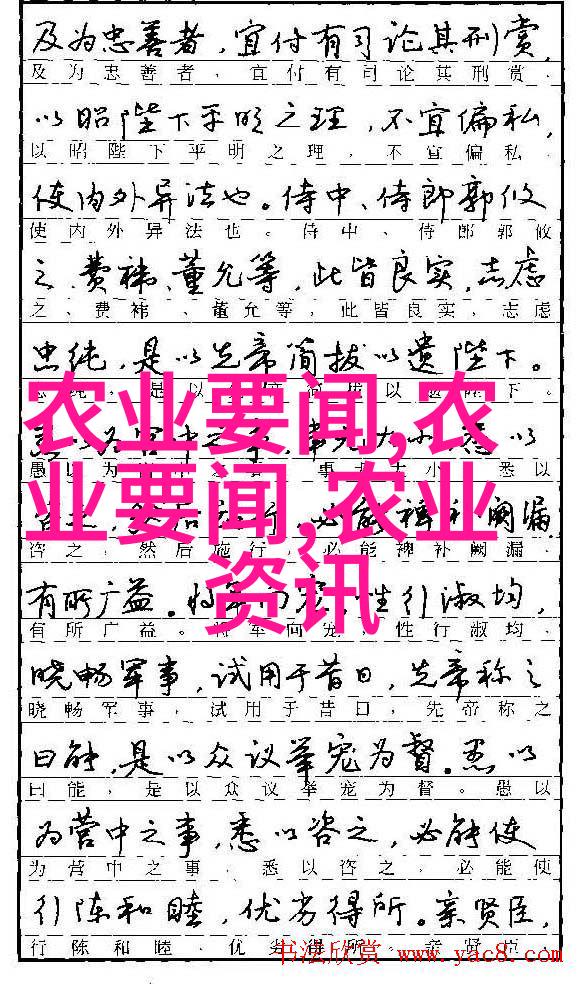 及为忠善者，宜付有司论其刑赏，
及为忠善者，宜付有司论其刑赏，
以昭陛下平明之理，不宜偏私，
以昭陛下平明之理，不宜偏私，
使内外异法也。侍中、侍郎郭攸
使内外异法也。侍中、侍郎郭攸
之、费祎、董允等，此皆良实，志虑
之、费祎、董允等，此皆良实，志虑
忠纯，是以先帝简拔以遗陛下。
农业要闻,农
业要闻,农业
资讯
愚以为 事 大小，悉以
咨之，然后施行，必能裨补阙漏，
有所广益。将军向宠，性行淑均，
有所广益。将军向宠，性行淑均，
晓畅军事，试用于昔日，先帝称之
晓畅军事，试用于昔日，先帝称之
曰能，是以众议举宠为督。愚以
曰能，是以众议举宠为督。愚以
为营中之事，悉以咨之，必能使
为营中之事，悉以咨之，必能使
行阵和睦，优劣得所。亲贤臣，
行阵和睦，优劣得所。亲贤臣，
书法欣赏 www.yac8.com